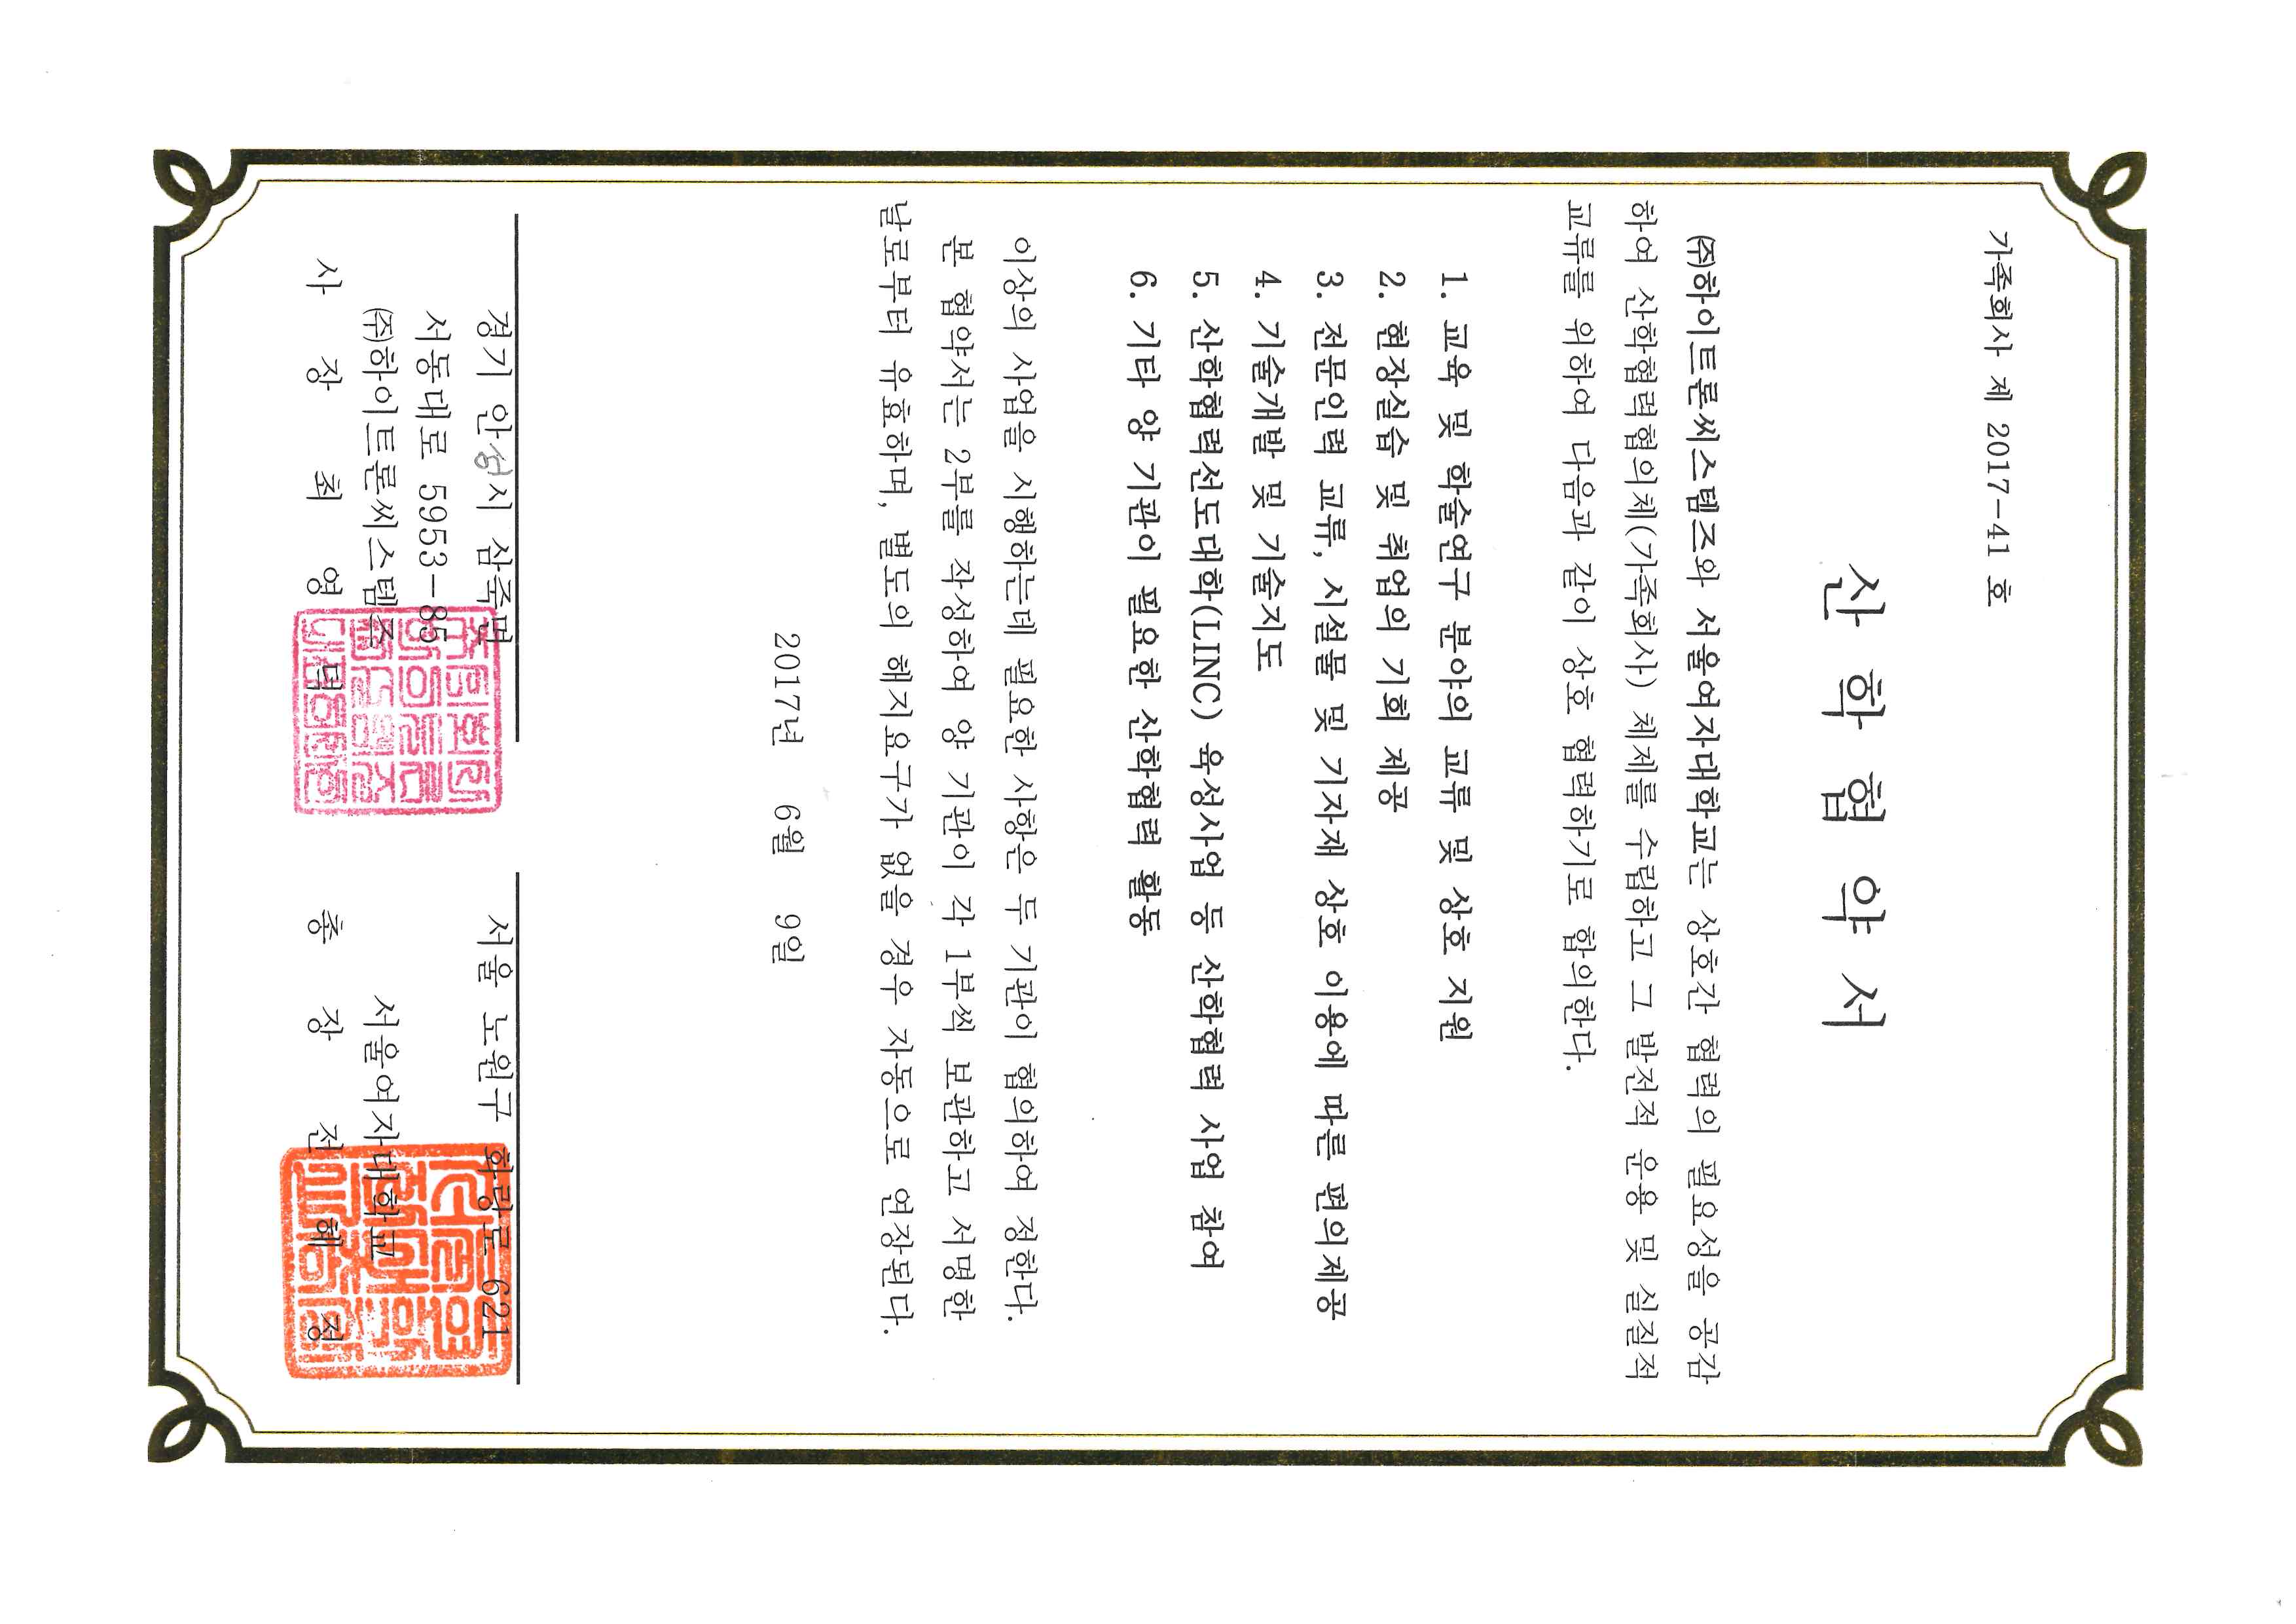 가족회사 제 2017-41 호
산 학 협 약 서
㈜하이트론씨스템즈와 서울여자대학교는 상호간 협력의 필요성을 공감
하여 산학협력협의체(가족회사) 체제를 수립하고 그 발전적 운용 및 실질적
교류를 위하여 다음과 같이 상호 협력하기로 합의한다.
1. 교육 및 학술연구 분야의 교류 및 상호 지원
2. 현장실습 및 취업의 기회 제공
3. 전문인력 교류, 시설물 및 기자재 상호 이용에 따른 편의제공
4. 기술개발 및 기술지도
5. 산학협력선도대학(LINC) 육성사업 등 산학협력 사업 참여
6. 기타 양 기관이 필요한 산학협력 활동
이상의 사업을 시행하는데 필요한 사항은 두 기관이 협의하여 정한다.
본 협약서는 2부를 작성하여 양 기관이 각 1부씩 보관하고 서명한
날로부터 유효하며, 별도의 해지요구가 없을 경우 자동으로 연장된다.
2017년 6월 9일
경기 안성시 삼죽면
서동대로 5953-85
㈜하이트론씨스템즈
사 장 최 영 덕
서울 노원구 화랑로 621
서울여자대학교
총 장 전 혜 정